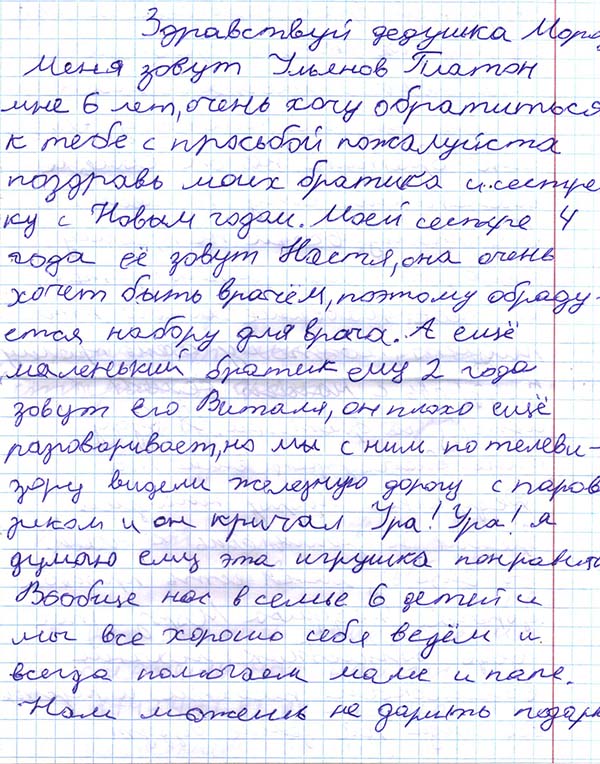 Здравствуй дедушка Моро
Меня зовут Ульянов Платон
мне 6 лет, очень хочу обратиться
к тебе с просьбой пожалуйста
поздравь моих братика и сестре
ку с Новым годом. Моей сестре 4
года её зовут Настя, она очень
хочет быть врачём, поэтому обраду-
ется набору для врача. А ещё
маленький братик ему 2 года
зовут его Виталя, он плохо ещё
разговаривает, но мы с ним по телеви-
зору видели железную дорогу с паров
зиком и он кричал Ура! Ура! я
думаю ему эта игрушка понравитс
Вообще нас в семье 6 детей и
мы все хорошо себя ведём и
всегда помогаем маме и папе.
Нам можешь не дарить подарк